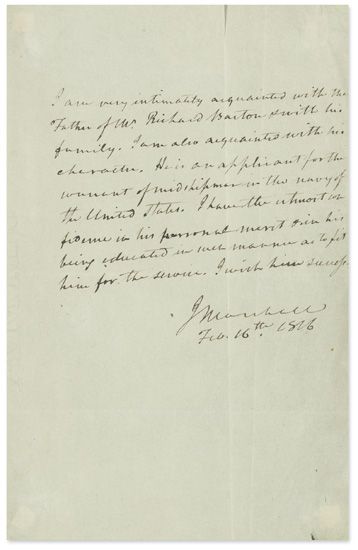 I am very intimately acquainted with the
Father of Mr. Richard Barton Smith his
family. I am also acquainted with his
character. He is an applicant for the
warrant of midshipman in the navy of
the United States. I have the utmost con
fidence in his personal merit & in his
being educated in such manner as to fit
him for the service. I wish him success.
J Marshall
Feb. 16th. 1816